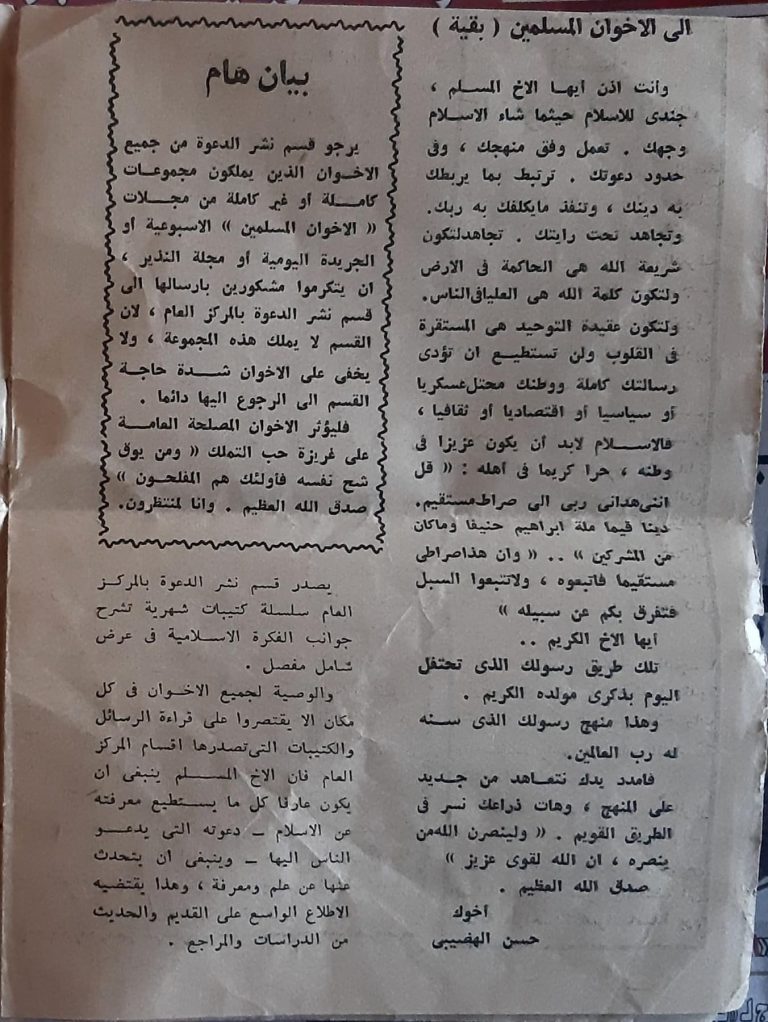 الى الاخوان المسلمين ( بقية )
وأنت اذن أيها الاخ المسلم ،
جندى للاسلام حيثما شاء الاسلام
وجهك . تعمل وفق منهجك ، وفى
حدود دعوتك . ترتبط بما يربطك
به دينك ، وتنفذ مايكلفك به ربك.
وتجاهد تحت رايتك . تجاهدلتكون
شريعة الله هى الحاكمة فى الارض
ولتكون كلمة الله هى العليافى الناس.
ولتكون عقيدة التوحيد هى المستقرة
فى القلوب ولن تستطيع ان تؤدى
رسالتك كاملة ووطنك محتل عسكريا
أو سياسيا أو اقتصاديا أو ثقافيا ،
فالاسلام لابد أن يكون عزيزا فى
وطنه ، حرا كريما فى أهله : « قل
اننى هدانى ربى الى صراط مستقيم.
دينا قيما ملة ابراهيم حنيفا وماكان
من المشركين » .. « وان هذاصراطى
مستقيما فاتبعوه ، ولاتتبعوا السبل
فتفرق بكم عن سبيله »
أيها الاخ الكريم ..
تلك طريق رسولك الذى تحتفل
اليوم بذكرى مولده الكريم .
وهذا منهج رسولك الذى سنه
له رب العالمين.
فامدد يدك نتعاهد من جديد
على المنهج ، وهات ذراعك نسر فى
الطريق القويم . « ولينصرن الله من
ينصره ، ان الله لقوى عزيز »
صدق الله العظيم .
أخوك
حسن الهضيبى
بيان هام
يرجو قسم نشر الدعوة من جميع
الاخوان الذين يملكون مجموعات
كاملة أو غير كاملة من مجلات
« الاخوان المسلمين » الاسبوعية أو
الجريدة اليومية أو مجلة النذير ،
ان يتكرموا مشكورين بارسالها الى
قسم نشر الدعوة بالمركز العام ، لان
القسم لا يملك هذه المجموعة ، ولا
يخفى على الاخوان شدة حاجة
القسم الى الرجوع اليها دائما .
فليؤثر الاخوان المصلحة العامة
على غريزة حب التملك « ومن يوق
شح نفسه فأولئك هم المفلحون »
صدق الله العظيم . وانا لمنتظرون.
يصدر قسم نشر الدعوة بالمركز
العام سلسلة كتيبات شهرية تشرح
جوانب الفكرة الاسلامية فى عرض
شامل مفصل .
والوصية لجميع الاخوان فى كل
مكان الا يقتصروا على قراءة الرسائل
والكتيبات التى تصدرها اقسام المركز
العام فان الاخ المسلم ينبغى ان
يكون عارفا كل ما يستطيع معرفته
عن الاسلام ــ دعوته التى يدعو
الناس اليها ــ وينبغى ان يتحدث
عنها عن علم ومعرفة ، وهذا يقتضيه
الاطلاع الواسع على القديم والحديث
من الدراسات والمراجع .